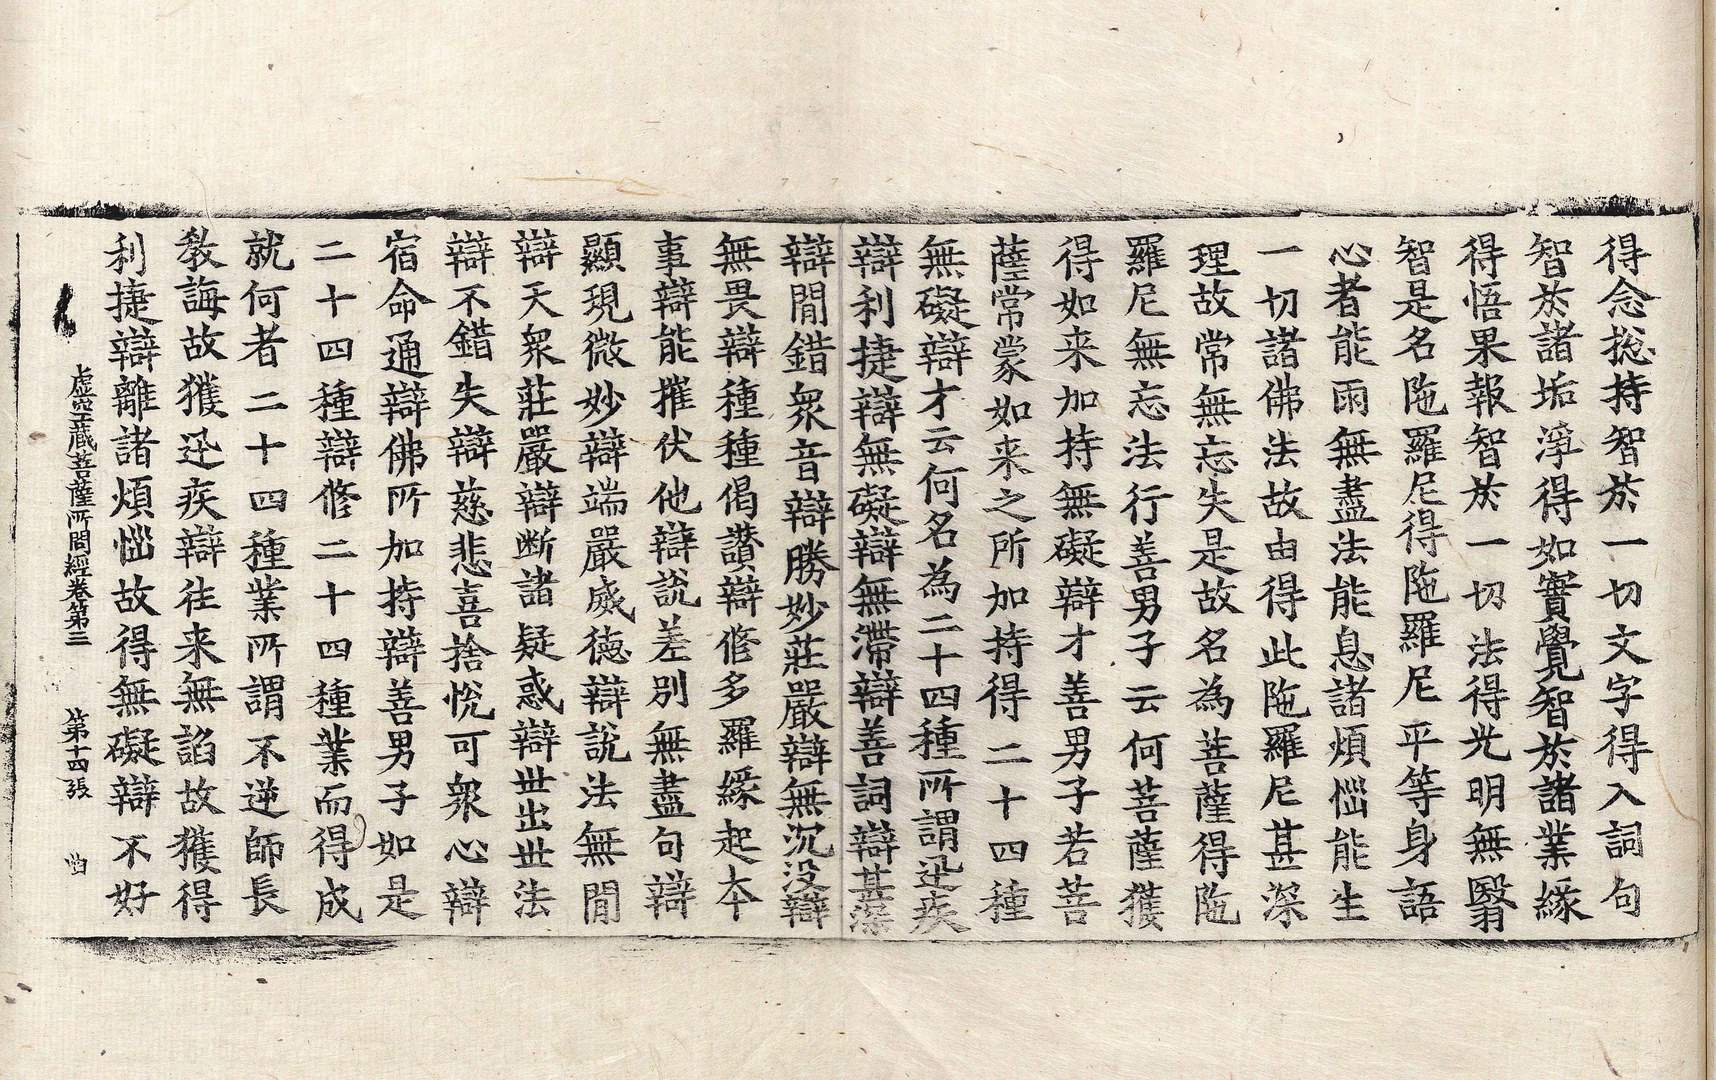 得念捴持智於一切文字得入詞句
智於諸垢淨得如實覺智於諸業緣
得悟果報智於一切法得光明無翳
智是名陁羅尼得陁羅尼平等身語
心者能雨無盡法能息諸煩惱能生
一切諸佛法故由得此陁羅尼甚深
理故常無忘失是故名為菩薩得陁
羅尼無忘法行善男子云何菩薩獲
得如来加持無礙辯才善男子若菩
薩常蒙如来之所加持得二十四種
無礙辯才云何名為二十四種所謂迅疾
辯利捷辯無礙辯無滯辯善詞辯甚深
辯閒錯衆音辯勝妙莊嚴辯無沉没辯
無畏辯種種偈讚辯修多羅緣起本
事辯能摧伏他辯說差別無盡句辯
顯現微妙辯端嚴威德辯說法無閒
辯天衆莊嚴辯断諸疑惑辯世出世法
辯不錯失辯慈悲喜捨悅可衆心辯
宿命通辯佛所加持辯善男子如是
二十四種辯修二十四種業而得成
就何者二十四種業所謂不逆師長
教誨故獲迅疾辯往来無諂故獲得
利捷辯離諸煩惱故得無礙辯不好
虛空藏菩薩所問經卷第三 第十四張